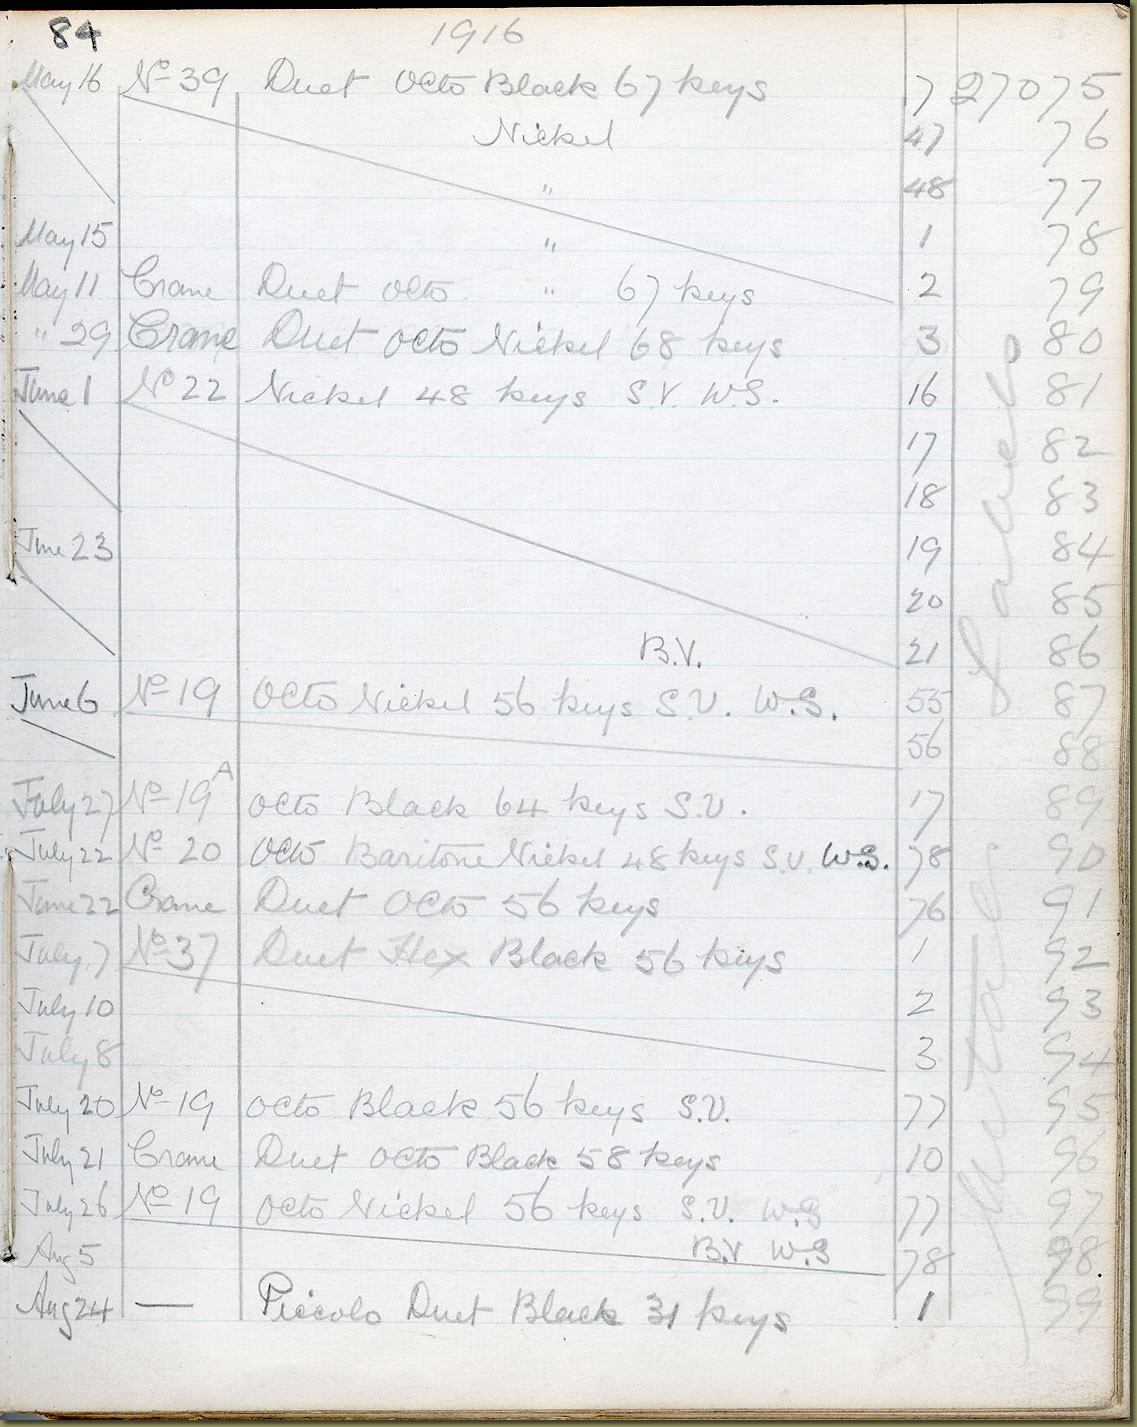 84 1916
May 16 No 39 Duet Octo Black 67 keys 17 27075
Nickel 47 76
" 48 77
May 15 " 1 78
May 11 Crane Duet Octo " 67 keys 2 79
" 29 Crane Duet Octo Nickel 68 keys 3 80
June 1 No 22 Nickel 48 keys S.V. W.S. 16 81
17 82
18 83
June 23 19 84
20 85
B.V. 21 86
June 6 No 19 Octo Nickel 56 keys S.V. W.S. 55 87
56 88
July 27 No 19A Octo Black 64 keys S.V. 17 89
July 22 No 20 Octo Baritone Nickel 48 keys S.V. W.S. 78 90
June 22 Crane Duet Octo 56 keys 76 91
July 7 No 37 Duet Hex Black 56 keys 1 92
July 10 2 93
July 8 3 94
July 20 No 19 Octo Black 56 keys S.V. 77 95
July 21 Crane Duet Octo Black 58 keys 10 96
July 26 No 19 Octo Nickel 56 keys S.V. W.S 77 97
Aug 5 B.V W.S 78 98
Aug 24 — Piccolo Duet Black 31 keys 1 99